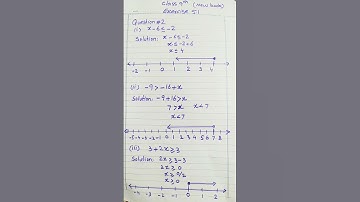 Class 9th (New book)
Exercise 5.1
Question #2
(i) x-6≤-2
Solution: x-6≤-2
x≤-2+6
x≤4
-2 -1 0 1 2 3 4
(ii) -9>-16+x
Solution: -9+16>x
7>x x<7
x<7
-5 -4 -3 -2 -1 0 1 2 3 4 5 6 7 8
(iii) 3+2x≥3
Solution: 2x≥3-3
2x≥0
x≥0/2
x≥0
-4 -3 -2 -1 0 1 2